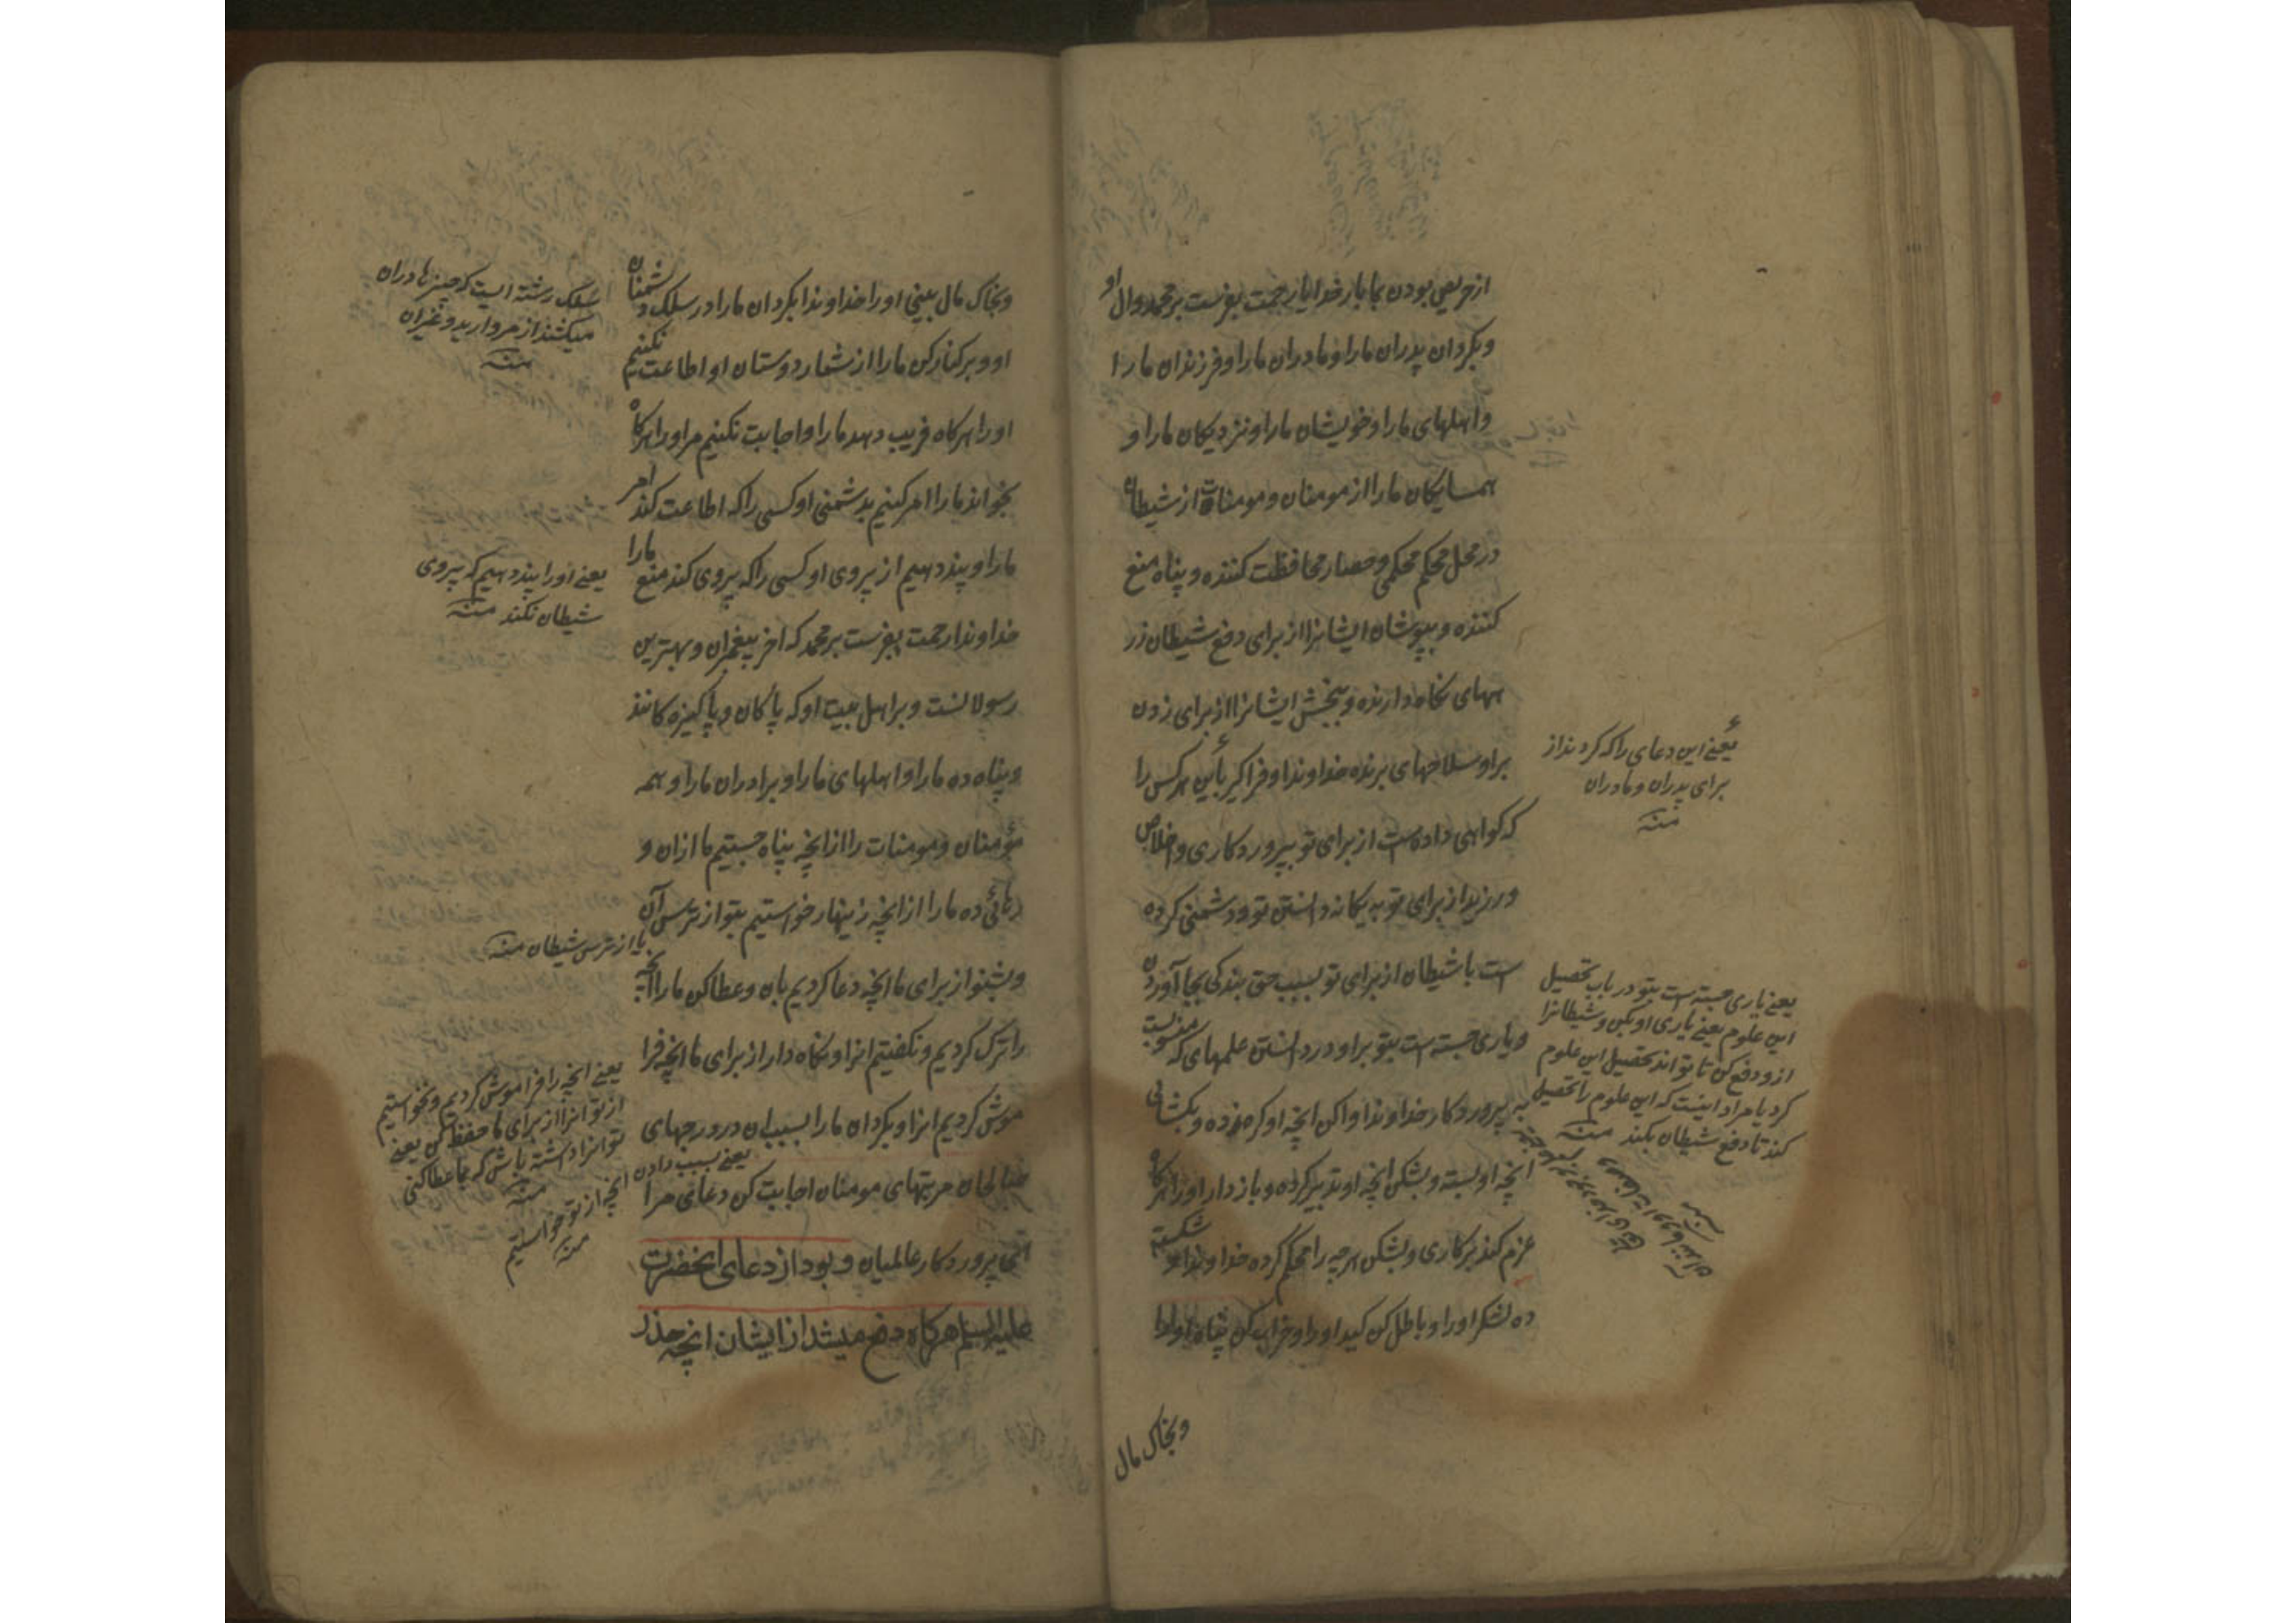 از حریص بودن بما بار خدایا رحمت بفرست بر محمد و ال او
و بکردان پدران ما را و مادران ما را و فرزندان ما را
و اهلهای ما را و خویشان ما را و نزدیکان ما را و
همسایکان ما را از مومنان و مومنات از شیطان
در محل محکم محکمی و حصنار محافظت کننده و پناه منع
کننده و بپوشان ایشانرا از برای دفع شیطان زر
ههای نکاه دارنده و ببخش ایشانرا از برای زدن
بر او سلاحهای برنده خداوندا و فراکیر باین هر کس را
که کواهی داده است از برای تو بپروردکاری و اخلاص
ورزید از برای تو به یکانه دانستن تو و دشمنی کرده
است با شیطان از برای تو بسبب حق بندکی بجا آوردن
و یاری جسته است بتو بر او در دانستن علمهای که منسوبست
به پروردکار خداوندا وا کن انچه او کره زده و بکشای
انچه او بسته و بشکن انچه او تدبیر کرده و باز دار او را هرکاه
عزم کند بر کاری و بشکن هر چه را محکم کرده خداوندا و شکست
ده لشکر او را و باطل کن کید او را و خراب کن پناه او را
و بخاک مال
یعنی این دعای را که کردند از
برای پدران و مادران
منه
یعنی یاری جسته است بتو در باب تحصیل
این علوم یعنی یاری او بکن و شیطانرا
ازو دفع کن تا تواند تحصیل این علوم
کرد یا مراد اینست که این علوم را تحصیل
کند تا دفع شیطان بکند منه
و بخاک مال بینی او را خداوندا بکردان ما را در سلک دشمنان
او و بر کنار کن ما را از شمار دوستان او اطاعت نکنیم
او را هرکاه فریب دهد ما را و اجابت نکنیم مر او را هرکاه
بخواند ما را امر کنیم بدشمنی او کسی را که اطاعت کند امر
ما را و پند دهیم از پیروی او کسی را که پیروی کند منع ما را
خداوندا رحمت بفرست بر محمد که اخر پیغمبران و بهترین
رسولانست و بر اهل بیت او که پاکان و پاکیزه کانند
و پناه ده ما را و اهلهای ما را و برادران ما را و همه
مؤمنان و مومنات را از انچه پناه جستیم ما ازان و
رهائی ده ما را از انچه زینهار خواستیم بتو از ترس آن
و بشنو از برای ما انچه دعا کردیم بان و عطا کن ما را انچه
را ترک کردیم و نکفتیم انرا و نکاه دار از برای ما انچه فرا
موش کردیم انرا و بکردان ما را بسبب ان در درجهای
صالحان مرتبهای مومنان اجابت کن دعای مرا
ای پروردکار عالمیان و بود از دعای انحضرت
علیه السلام هرکاه دفع میشد از ایشان انچه حذر
سلک رشته ایست که چیزها دران
میکشند از مروارید و غیر ان
منه
یعنی او را پند دهیم که پیروی
شیطان نکند منه
یا از ترس شیطان منه
یعنی انچه را فراموش کردیم و نخواستیم
از تو انرا از برای ما حفظ کن یعنی
تو انرا داشته باش که بما عطا کنی
منه
یعنی بسبب دادن
انچه از تو خواستیم
منه